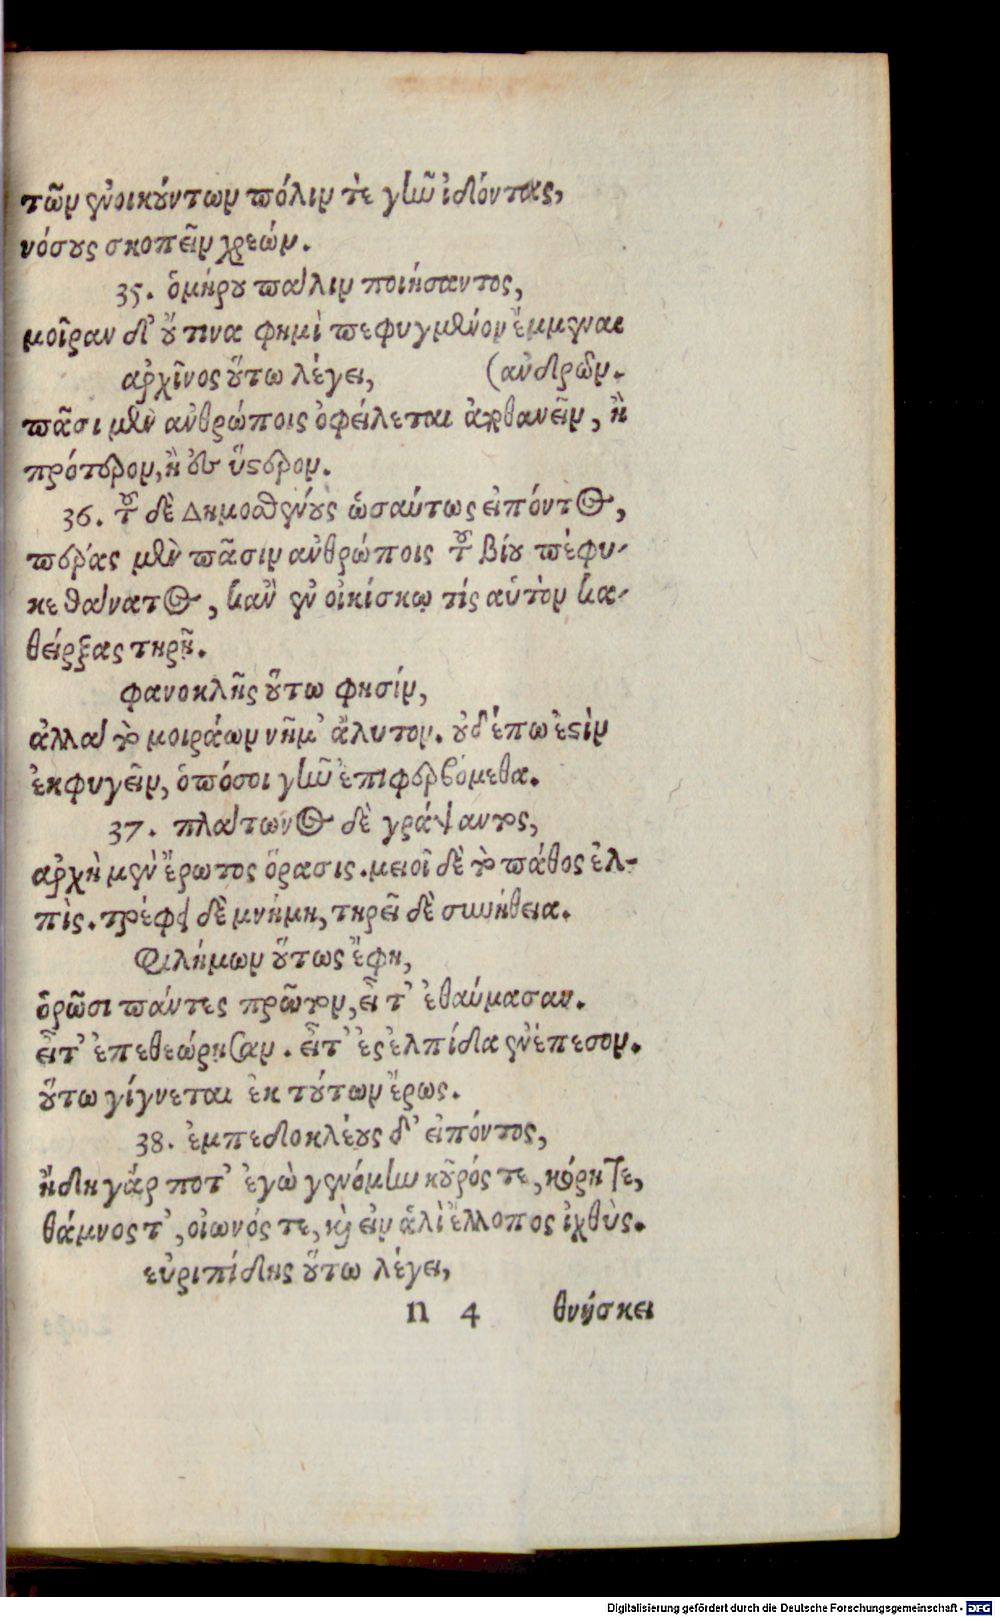 τῶν ἐνοικούντων πόλιν τὲ γῆν ἰδόντας,
νόσους σκοπεῖν χρεών.
35. ὁμήρου πάλιν ποιήσαντος,
μοῖραν δ' οὔ τινα φημὶ πεφυγμένον ἔμμεναι
ἀρχῖνος οὕτω λέγει, (ἀνδρῶν.
πᾶσι μὲν ἀνθρώποις ὀφείλεται ἀποθανεῖν, ἢ
πρότερον, ἢ εἰς ὕστερον.
36. τοῦ δὲ Δημοσθένους ὡσαύτως εἰπόντος,
πέρας μὲν πᾶσιν ἀνθρώποις τοῦ βίου πέφυ-
κε θάνατος, κἂν ἐν οἰκίσκῳ τίς αὑτὸν κα-
θείρξας τηρῇ.
φανοκλῆς οὕτω φησίν,
ἀλλὰ τὸ μοιράων νῆμ' ἄλυτον. οὐδέπω ἐστὶν
ἐκφυγεῖν, ὁπόσοι γῆν ἐπιφερβόμεθα.
37. πλάτωνος δὲ γράψαντος,
ἀρχὴ μὲν ἔρωτος ὅρασις. μειοῖ δὲ τὸ πάθος ἐλ-
πὶς. τρέφει δὲ μνήμη, τηρεῖ δὲ συνήθεια.
Φιλήμων οὕτως ἔφη,
ὁρῶσι πάντες πρῶτον, εἶτ' ἐθαύμασαν.
εἶτ' ἐπεθεώρησαν. εἶτ' ἐς ἐλπίδα ἐνέπεσον.
οὕτω γίγνεται ἐκ τούτων ἔρως.
38. ἐμπεδοκλέους δ' εἰπόντος,
ἤδη γάρ ποτ' ἐγὼ γενόμην κοῦρός τε, κόρη τε,
θάμνος τ', οἰωνός τε, καὶ εἰν ἁλὶ ἔλλοπος ἰχθὺς.
εὐριπίδης οὕτω λέγει,
n 4 θνήσκει
Digitalisierung gefördert durch die Deutsche Forschungsgemeinschaft - DFG